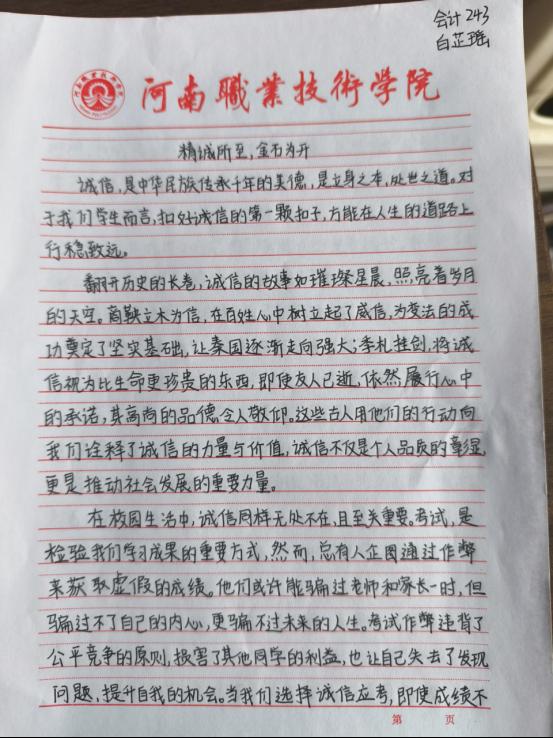 会计243
白芷瑶
河南職業技術学院
精诚所至,金石为开
诚信,是中华民族传承千年的美德,是立身之本,处世之道。对
于我们学生而言,扣好诚信的第一颗扣子,方能在人生的道路上
行稳致远。
翻开历史的长卷,诚信的故事如璀璨星晨,照亮着岁月
的天空。商鞅立木为信,在百姓心中树立起了威信,为变法的成
功奠定了坚实基础,让秦国逐渐走向强大;季札挂剑,将诚
信视为比生命更珍贵的东西,即使友人已逝,依然履行心中
的承诺,其高尚的品德令人敬仰。这些古人用他们的行动向
我们诠释了诚信的力量与价值,诚信不仅是个人品质的彰显,
更是推动社会发展的重要力量。
在校园生活中,诚信同样无处不在,且至关重要。考试,是
检验我们学习成果的重要方式,然而,总有人企图通过作弊
来获取虚假的成绩。他们或许能骗过老师和家长一时,但
骗过不了自己的内心,更骗不过未来的人生。考试作弊违背了
公平竞争的原则,损害了其他同学的利益,也让自己失去了发现
问题,提升自我的机会。当我们选择诚信应考,即使成绩不
第 页